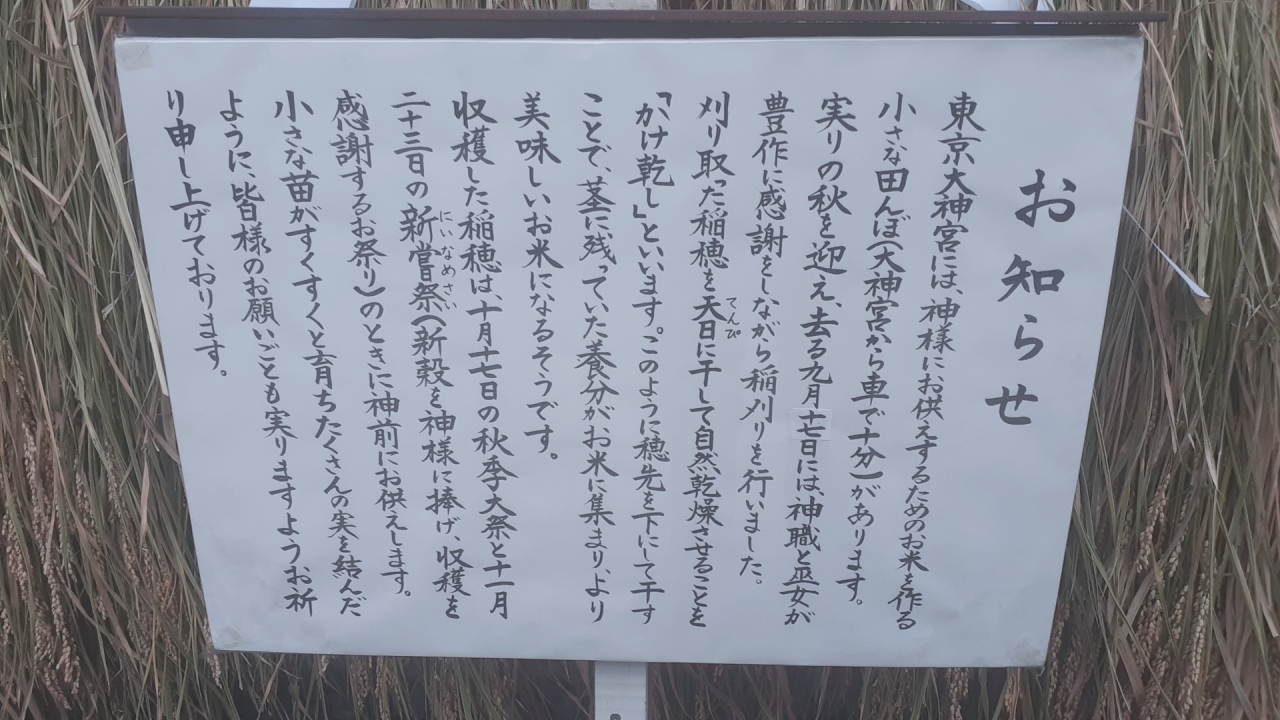 お知らせ
東京大神宮には、神様にお供えするためのお米を作る
小さな田んぼ(大神宮から車で十分)があります。
実りの秋を迎え、去る九月十七日には、神職と巫女が
豊作に感謝をしながら稲刈りを行いました。
刈り取った稲穂を天日に干して自然乾燥させることを
てんぴ
「かけ乾し」といいます。このように穂先を下にして干す
ことで、茎に残っていた養分がお米に集まり、より
美味しいお米になるそうです。
収穫した稲穂は、十月十七日の秋季大祭と十一月
二十三日の新嘗祭(新穀を神様に捧げ、収穫を
にいなめさい
感謝するお祭り)のときに神前にお供えします。
小さな苗がすくすくと育ちたくさんの実を結んだ
ように、皆様のお願いごとも実りますようお祈
り申し上げております。